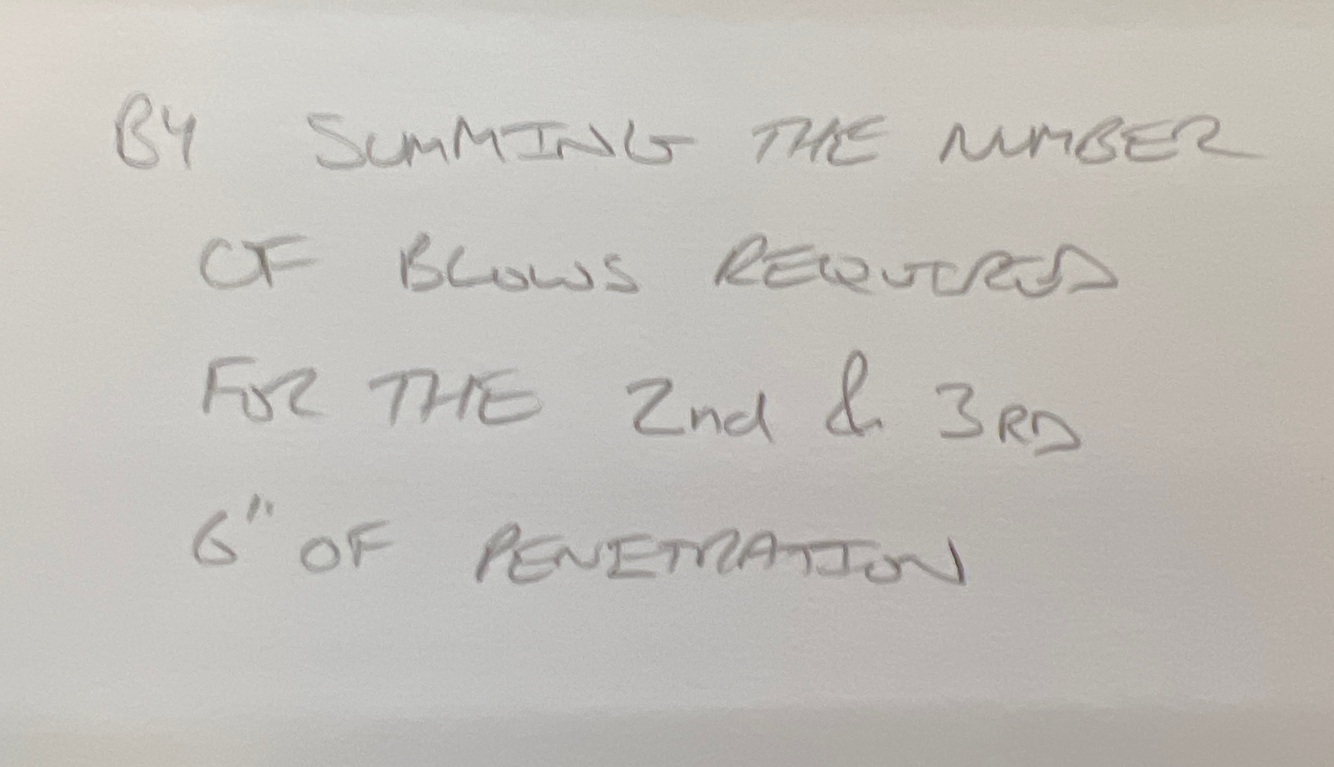 BY SUMMING THE NUMBER
OF BLOWS REQUIRED
FOR THE 2nd & 3RD
6" OF PENETRATION